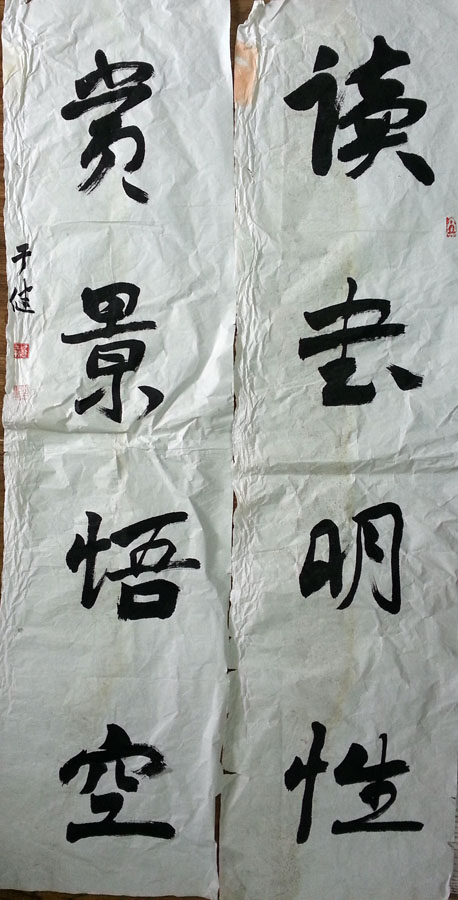 读书明性
赏景悟空
于健